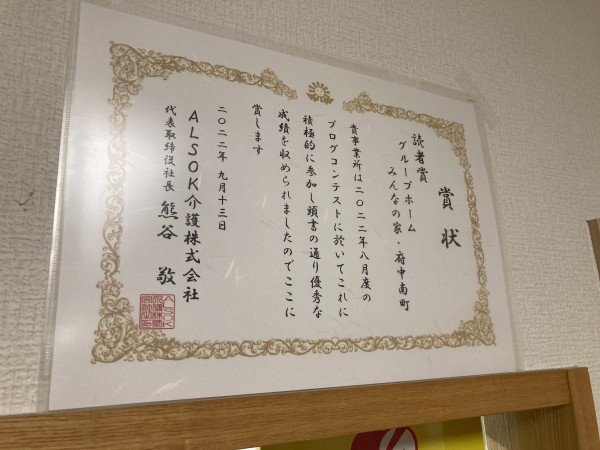 賞状
読者賞
グループホーム
みんなの家・府中南町
貴事業所は二〇二二年八月度の
ブログコンテストに於いてこれに
積極的に参加し頭書の通り優秀な
成績を収められましたのでここに
賞します
二〇二二年 九月十三日
ALSOK介護株式会社
代表取締役社長 熊谷 敬